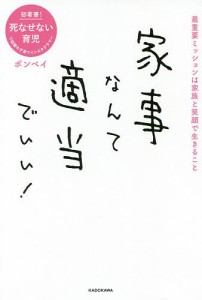 最重要ミッションは家族と笑顔で生きること
家事
なんて
適当
でいい!
初著書!
死なせない
育児
ボンベイ
KADOKAWA